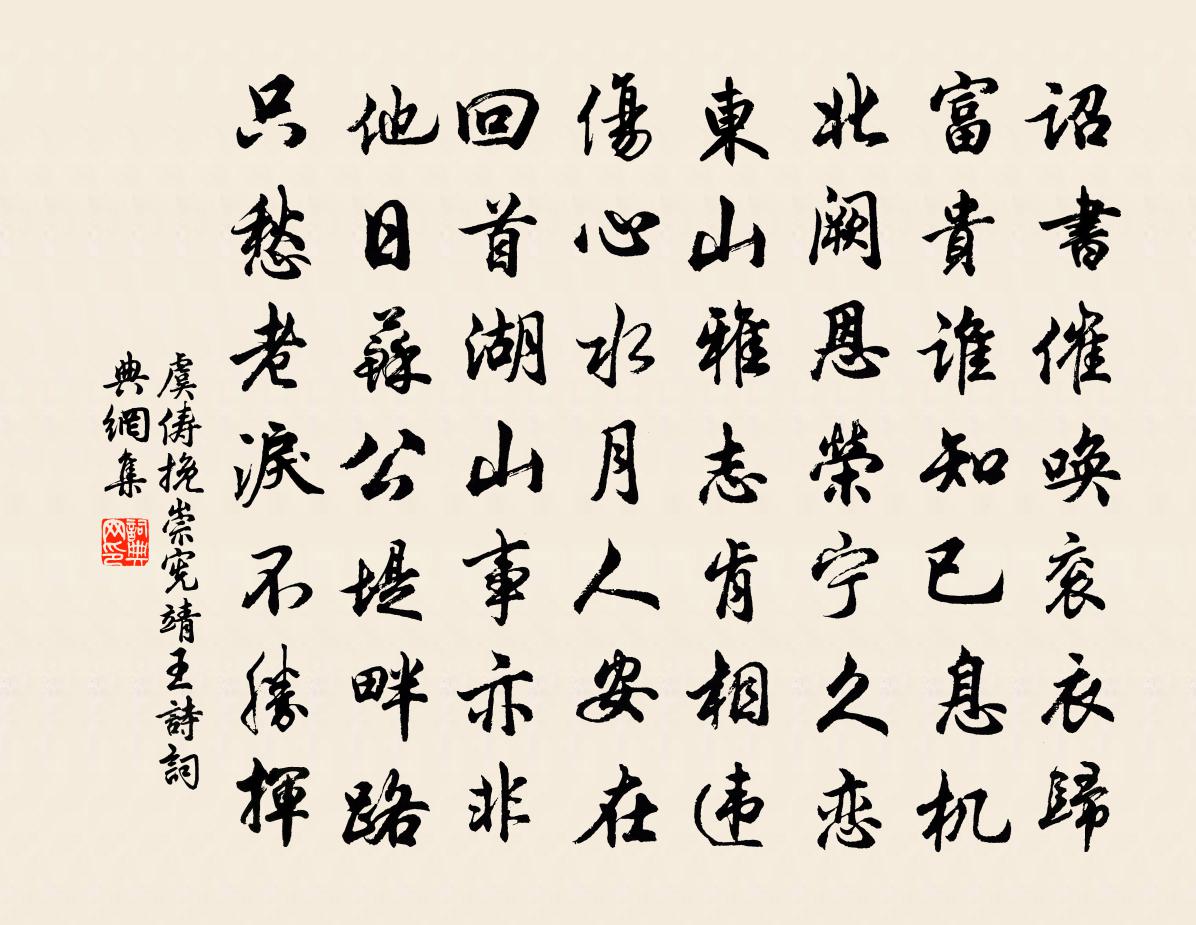 詔書催喚衮衣歸
富貴誰知已息机
北闕恩榮宁久恋
東山雅志肯相违
傷心水月人安在
回首湖山事亦非
他日蘇公堤畔路
只愁老淚不勝揮
虞儔挽崇宪靖王詩詞
典網集
詞典
网印